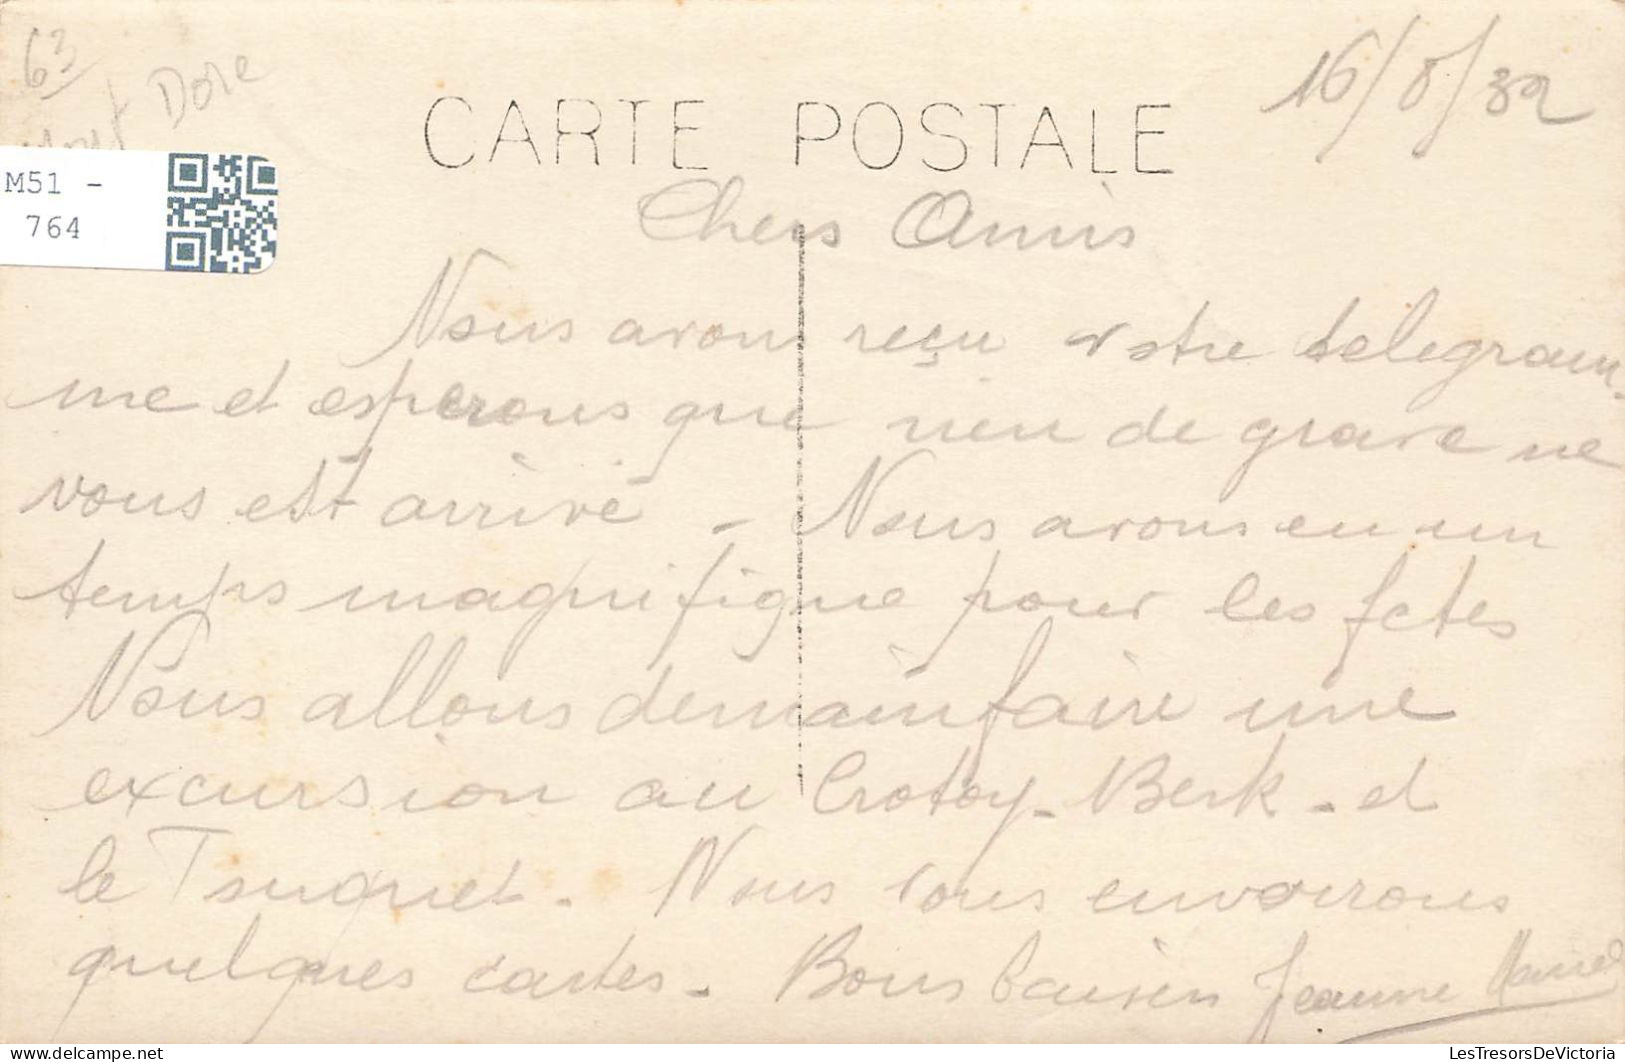 63
Mont Dore
16/8/32
CARTE POSTALE
M51 -
764
Chers Amis
Nous avons reçu votre telegram
me et esperons que rien de grave ne
vous est arrivé - Nous avons eu un
temps magnifique pour les fetes
Nous allons demain faire une
excursion au Crotoy - Berk - et
le Touquet. Nous vous enverrons
quelques cartes. Bons baisers Jeanne
LesTresorsDeVictoria